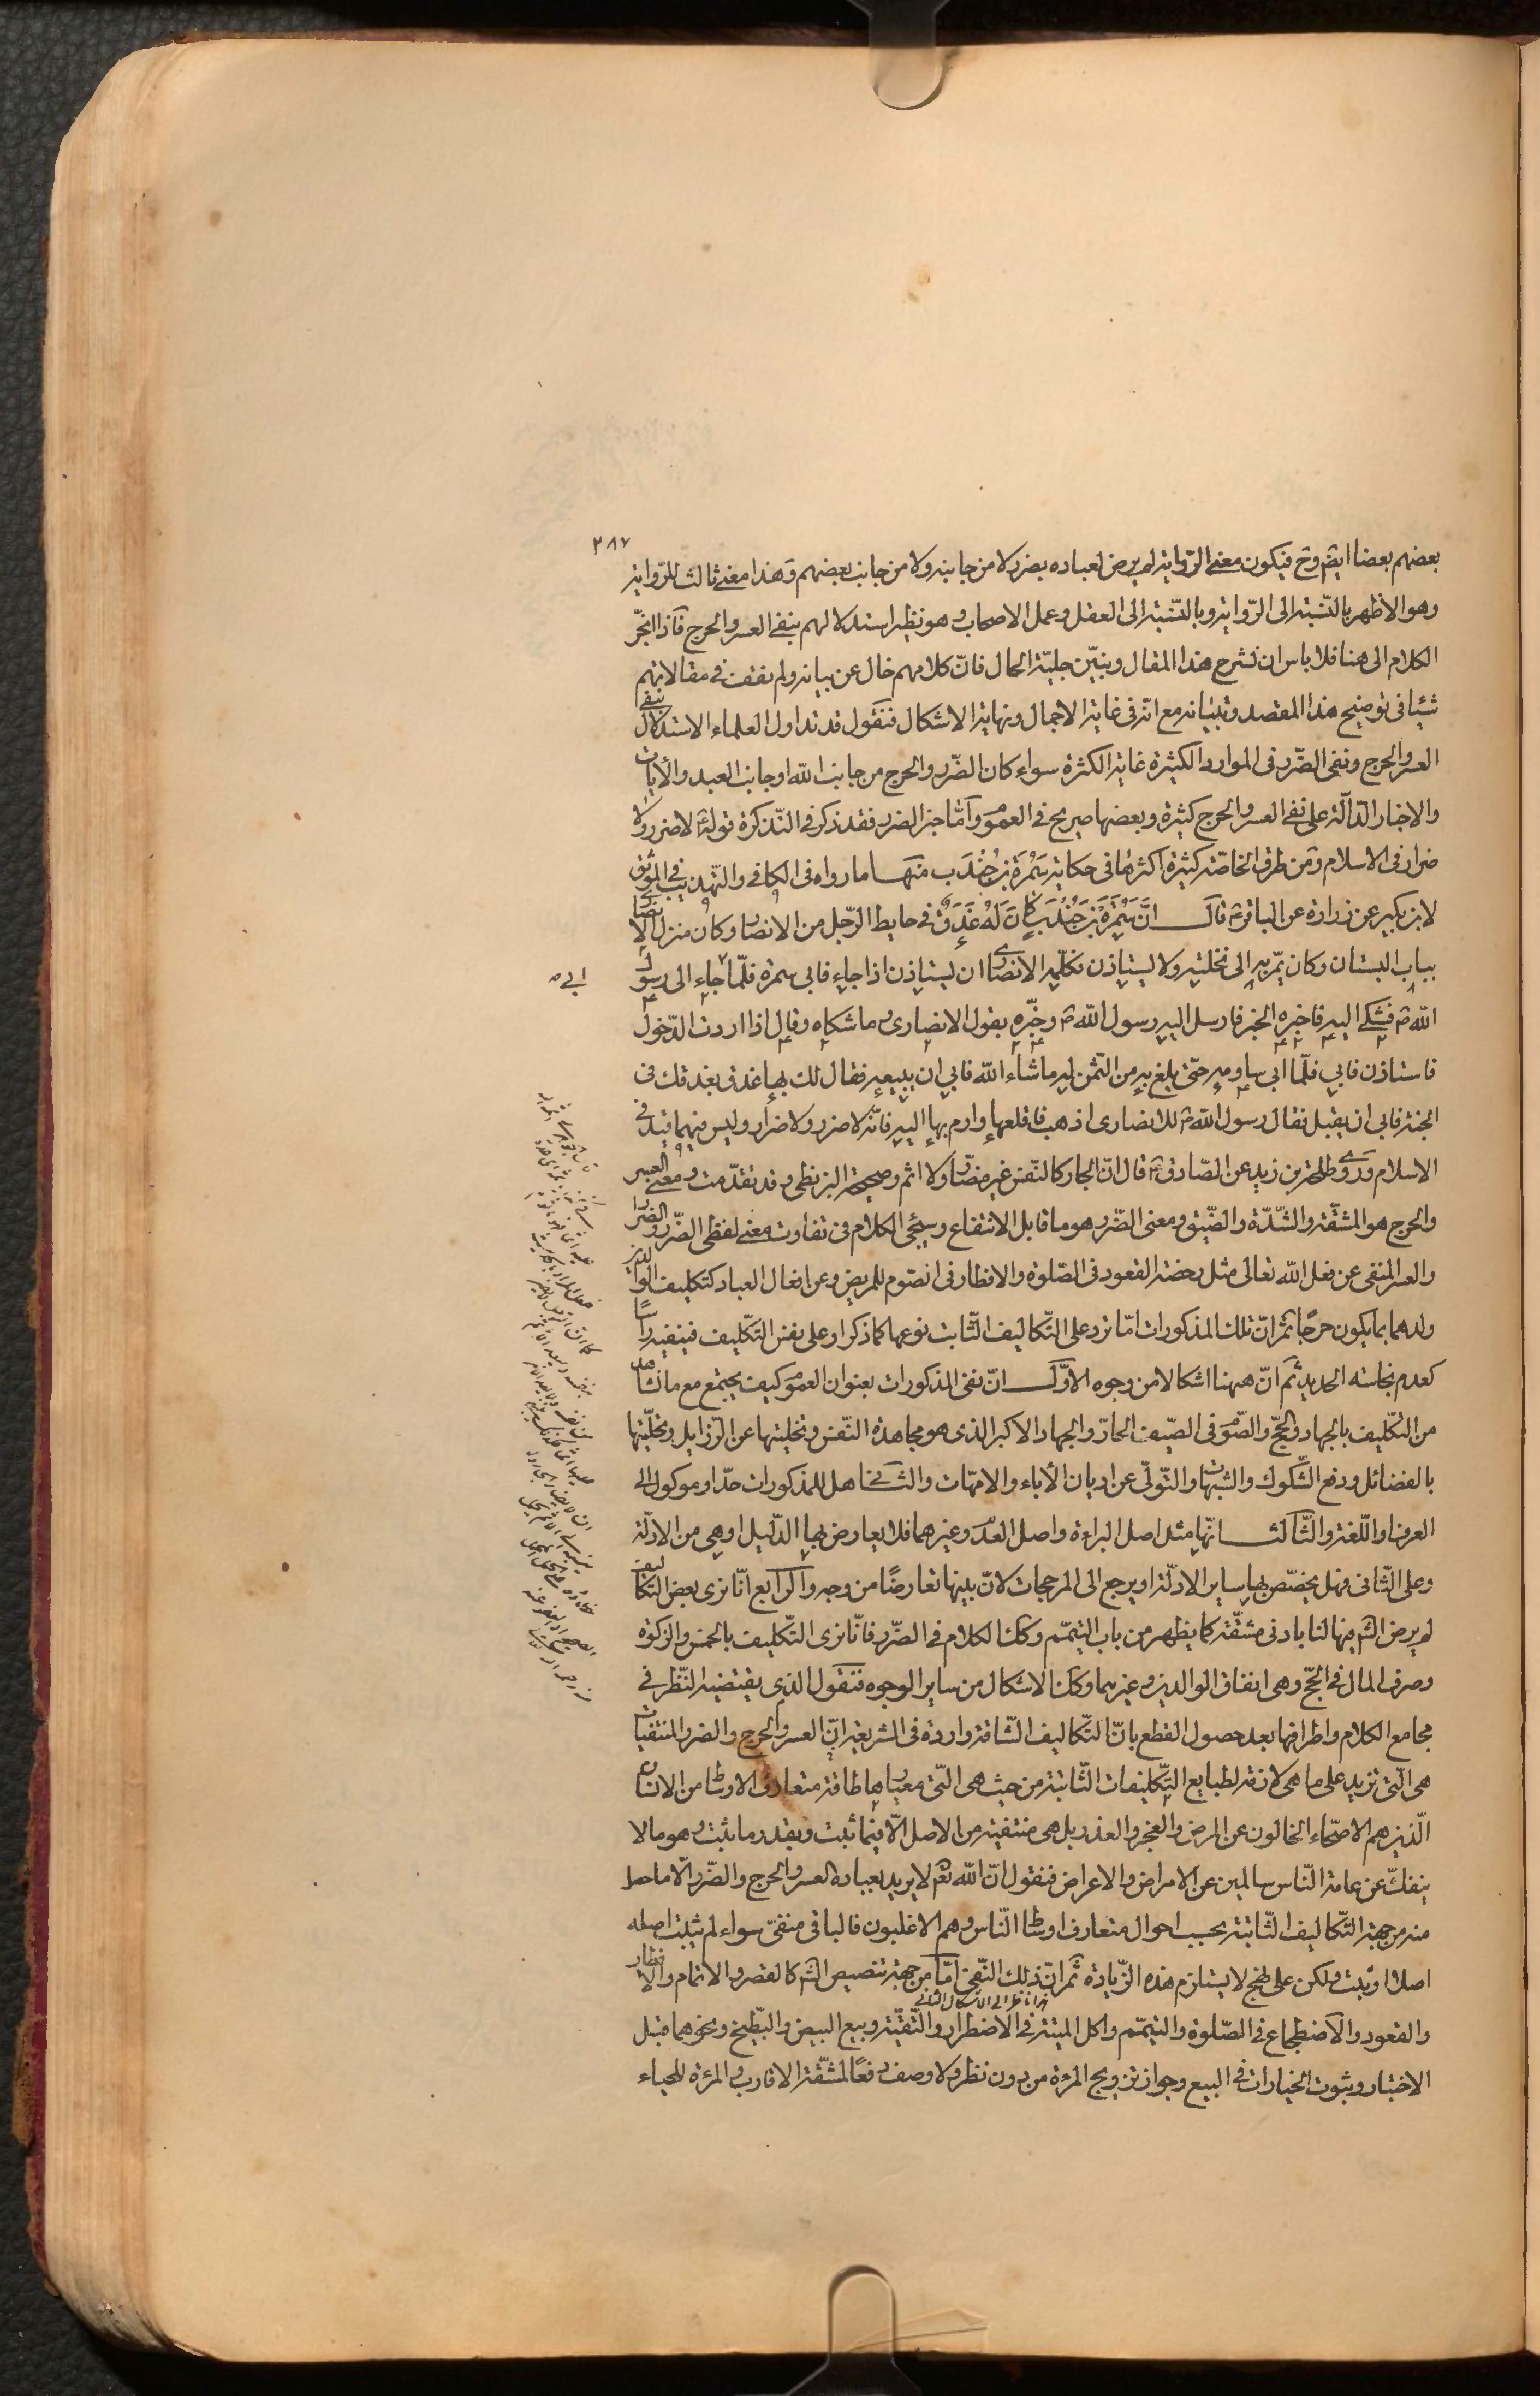 ٢٨٧
بعضهم بعضا ايضم وح فيكون معنى الرّواية لم يرض لعباده بضرر لا من جانبه ولا من جانب بعضهم وهذا معنى ثالث للرّواية
وهو الاظهر بالنّسبة الى الرّواية وبالنّسبة الى العقل وعمل الاصحاب وهو نظير استدلالهم بنفى العسر والحرج فاذا انجرّ
الكلام الى هنا فلا باس ان نشرح هذا المقال ونبيّن جليّة الحال فانّ كلامهم خال عن بيانه ولم نقف فى مقالاتهم
شيئا فى توضيح هذا المقصد وتبيانه مع انّه فى غاية الاجمال ونهاية الاشكال فنقول قد تداول العلماء الاستدلال بنفى
العسر والحرج ونفى الضّرر فى الموارد الكثيرة غاية الكثرة سواء كان الضّرر والحرج من جانب اللّه او جانب العبد والايات
والاخبار الدّالّة على نفى العسر والحرج كثيرة وبعضها صريح فى العموم وامّا خبر الضرر فقد ذكر فى التّذكرة قوله ع لا ضرر ولا
ضرار فى الاسلام ومن طرق الخاصّة كثيرة اكثرها فى حكاية سَمُرَة بن جُنْدَب منها ما رواه فى الكافى والتّهذيب فى الموثّق
لابن بكير عن زرارة عن الباقر ع قال انَّ سَمُرَةَ بْنَ جُنْدَبٍ كَانَ لَهُ عَذَقٌ فى حايط الرّجل من الانصار وكان منزل الانصارى
بباب البستان وكان يمّر به الى نخلته ولا يستاذن فكلّمه الانصارى ان يستاذن اذا جاء فابى سمرة فلّما جاء الى رسول
اللّه ص فشكى اليه فاخبره الخبر فارسل اليه رسول اللّه ص وخبّره بقول الانصارى وما شكاه وقال اذا اردت الدّخول
فاستاذن فابى فلّما ابى ساومه حتّى بلغ به من الثّمن له ما شاء اللّه فابى ان يبيعه فقال لك بها عذق بعذقك فى
الجنّة فابى ان يقبل فقال رسول اللّه ص للانصارى اذهب فاقلعها وارم بها اليه فانّه لا ضرر ولا ضرار وليس فيهما قيد فى
الاسلام وروى طلحة بن زيد عن الصّادق ع قال انّ الجار كالنّفس غير مضّار ولا اثم وصحيحة البزنطى وقد تقدّمت ومعنى العسر
والحرج هو المشقّة والشّدّة والضّيق ومعنى الضّرر هو ما قابل الانتفاع وسيجئ الكلام فى تفاوت معنى لفظى الضّرر والضرار
والعسر المنفى عن فعل اللّه تعالى مثل رخصة القعود فى الصّلوة والافطار فى الصّوم للمريض وعن افعال العباد كتكليف الوالدين
ولدهما بما يكون حرجًا ثمّ انّ تلك المذكورات امّا ترد على التّكاليف الثّابت نوعها كما ذكر او على نفس التّكليف فينفيه راسًا
كعدم نجاسة الحديد ثم انّ ههنا اشكالا من وجوه الاوّل انّ نفى المذكورات بعنوان العموم كيف يجتمع مع ما نشاهد
من التكليف بالجهاد والحجّ والصّوم فى الصّيف الحارّ والجهاد الاكبر الذى هو مجاهدة النّفس وتخليتها عن الرّزايل وتحليّتها
بالفضائل ودفع الشّكوك والشبهات والتّولّى عن اديان الاباء والامهات والثانى هل للمذكورات حدّ او موكول الى
العرف او اللّغة والثّالث انّها مثل اصل البراءة واصل العدم وغيرهما فلا يعارض بها الدّليل او هى من الادلّة
وعلى الثّانى فهل يخصّص بها ساير الادلّة او يرجع الى المرجحات لانّ بينها تعارضًا من وجه والرّابع انّا نرى بعض التّكاليف
لم يرض الشم فيها لنا بادنى مشقّة كما يظهر من باب التيمّم وكك الكلام فى الضّرر فانّا نرى التّكليف بالخمس والزكوة
وصرف المال فى الحجّ وهى انفاق الوالدين وغيرهما وكك الاشكال من ساير الوجوه فنقول الذى يقتضيه النّظر فى
مجامع الكلام واطرافها بعد حصول القطع بانّ التّكاليف الشّاقة واردة فى الشريعة انّ العسر والحرج والضرر المنتفيات
هى الّتى تزيد على ما هى لازقة لطبايع التّكليفات الثّابتة من حيث هى الّتى معيارها طاقة متعارف الاوساط من الانسان
الّذين هم الاصّحاء الخالون عن المرض والعجز والعذر بل هى منتفية من الاصل الّا فيما ثبت وبقدر ما يثبت وهو ما لا
ينفكّ عن عامة النّاس سالمين عن الامراض والاعراض فنقول انّ اللّه تعم لا يريد بعباده العسر والحرج والضّرر الّا ما حصل
منه من جهة التّكاليف الثّابتة بحسب احوال متعارف اوساط النّاس وهم الاغلبون فالباقى منفىّ سواء لم يثبت اصله
اصلا او ثبت ولكن على نهج لا يستلزم هذه الزّيادة ثمّ انّ ذلك النّفى امّا من جهة تنصيص الشم كالقصر والاتمام والافطار
والقعود والاضطجاع فى الصّلوة والتيمّم واكل الميتة فى الاضطرار والتّقيّة وبيع البيض والبّطيخ ونحوهما قبل
الاختبار وثبوت الخيارات فى البيع وجواز تزويج المرءة من دون نظر ولا وصف دفعًا لمشقّة الاقارب والمرءة للحياء